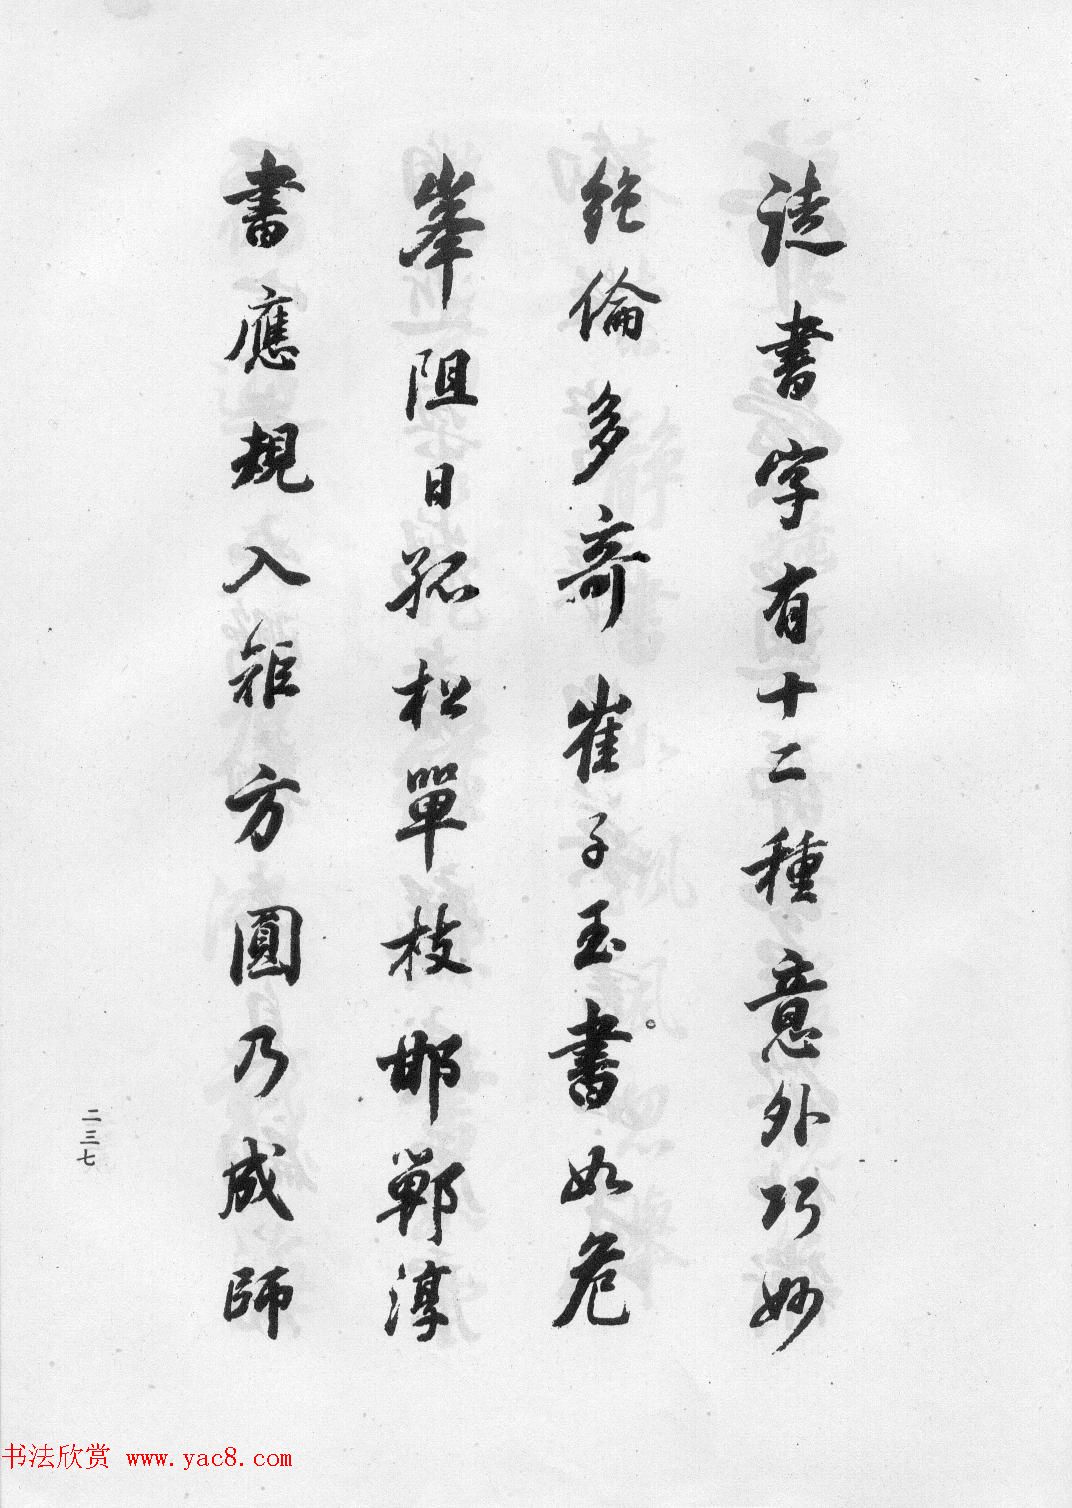 書字有十二種意外巧妙
絕倫多奇崔子玉書如危
峯阻日孤松單枝邯鄲淳
書應規入矩方圓乃成師
二三七
书法欣赏 www.yac8.com